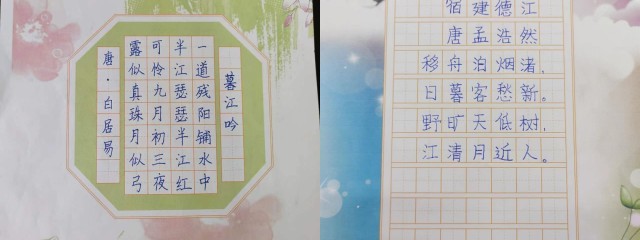 暮江吟
一道残阳铺水中
半江瑟瑟半江红
可怜九月初三夜
露似真珠月似弓
唐·白居易
宿建德江
唐孟浩然
移舟泊烟渚,
日暮客愁新。
野旷天低树,
江清月近人。